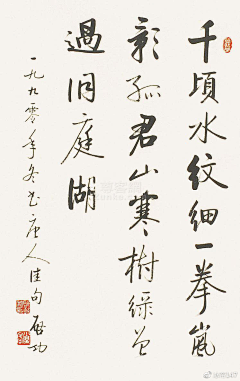 千頃水紋細一拳嵐
影孤君山寒樹綠曾
過洞庭湖
一九九零年冬书唐人佳句 啟功